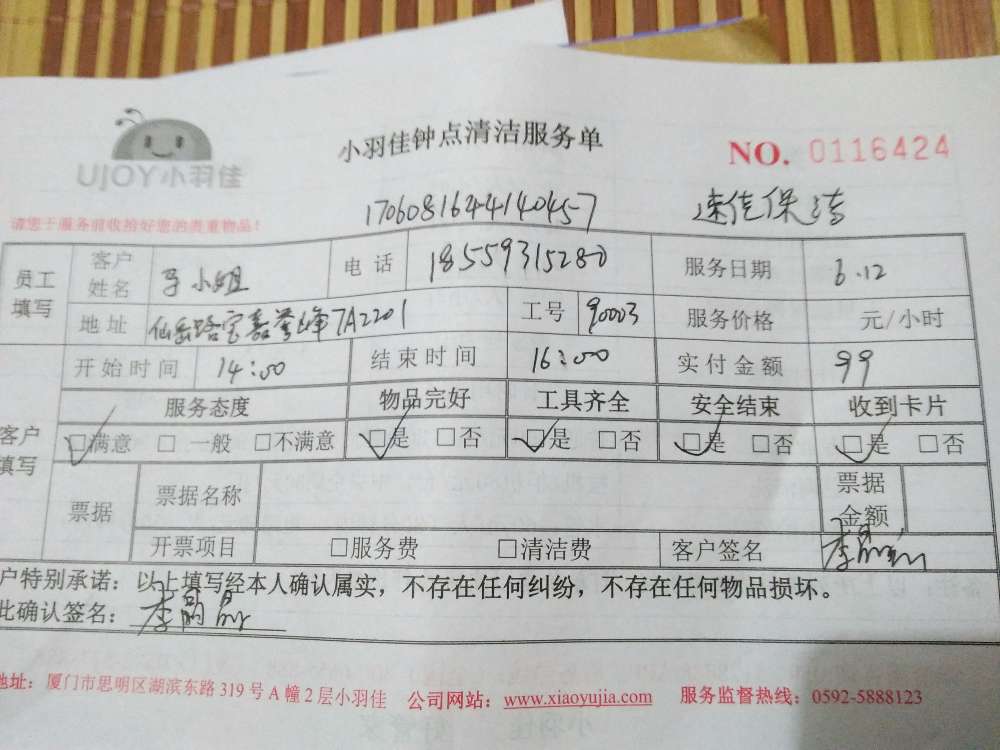 UJOY小羽佳
小羽佳钟点清洁服务单
NO. 0116424
请您于服务前收拾好您的贵重物品!
17060816244140457 速佳保洁
员工填写
客户姓名 小姐 电话 18559315280 服务日期 6.12
地址 仙岳路宝嘉誉峰7A2201 工号 90003 服务价格 元/小时
开始时间 14:00 结束时间 16:00 实付金额 99
客户填写
服务态度 物品完好 工具齐全 安全结束 收到卡片
☑满意 □一般 □不满意 ☑是 □否 ☑是 □否 ☑是 □否 ☑是 □否
票据 票据名称 票据金额
开票项目 □服务费 □清洁费 客户签名 李
户特别承诺:以上填写经本人确认属实,不存在任何纠纷,不存在任何物品损坏。
此确认签名:李晶晶
地址:厦门市思明区湖滨东路319号A幢2层小羽佳 公司网站:www.xiaoyujia.com 服务监督热线:0592-5888123